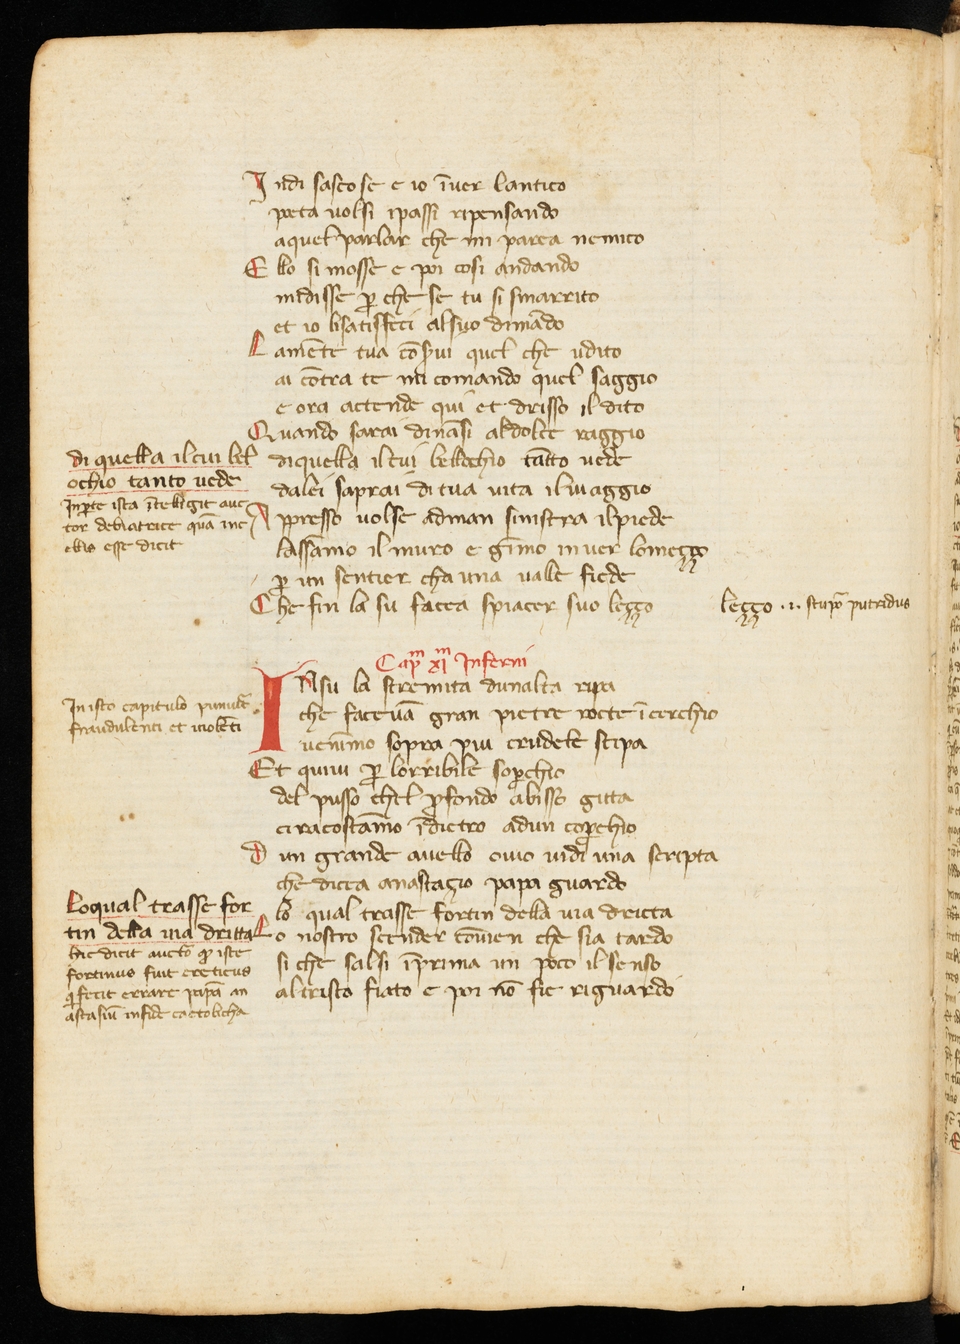 Indi sascose e io īuer lantico
poeta uolsi ipassi ripensando
aquel parlar che mi parea nemico
Ello si mosse e poi cosi andando
midisse ꝑ che se tu si smarrito
et io lisatisfeci alsuo dimādo
Lamēte tua cōẜui quel che udito
ai cōtra te mi comando quel saggio
e ora actende qui et drisso il dito
Quando sarai dināsi aldolce raggio
diquella ilcui bellochio tātto uede
dalei saprai di tua uita iluiaggio
Appresso uolse adman sinistra ilpiede
lassāmo il muro e gīmo inuer lomeçço
ꝑ un sentier cha una ualle fiede
Che fin la su facea spiacer suo leçço
di quella ilcui bel
ochio tanto uede
Inꝑte ista ītelligit auc
tor debiatrice quā in c
elis esse dicit
leçço .i. stupō putridus
Capᵐ xiᵐ Inferni
INsu la stremita dunalta ripa
che faceuā gran pietre rocte ī cerchio
uenīmo sopra piu crudele stipa
Et quiui ꝑ lorribile soꝑchio
del pusso chel ꝓfondo abisso gitta
ci racostāmo īdietro adun coꝑchio
Dun grande auello ouio uidi una scripta
che dicea anastaçio papa guardo
lo qual trasse fortin della uia dricta
Lo nostro scender cōuien che sia tardo
si che salsi īprima un poco il senso
altristo fiato e poi nō fie riguardo
In isto capitulo
fraudulenti et uiolēti
Loqual trasse for
tin della uia dritta
hic dicit auctō ꝙ iste
fortinus fuit ereticus
q̄ fecit errare papā an
astasiū infide catolicha